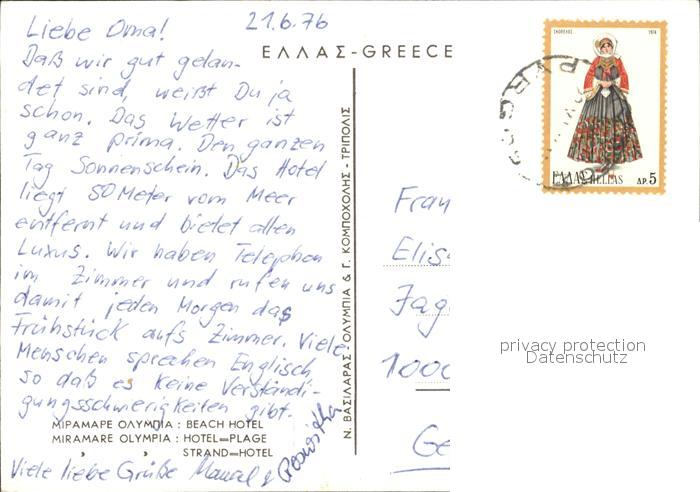 21.6.76
Liebe Oma!
Daß wir gut gelan-
det sind, weißt Du ja
schon. Das Wetter ist
ganz prima. Den ganzen
Tag Sonnenschein. Das Hotel
liegt 50 Meter vom Meer
entfernt und bietet allen
Luxus. Wir haben Telephon
im Zimmer und rufen uns
damit jeden Morgen das
Frühstück aufs Zimmer. Viele
Menschen sprechen Englisch
so daß es keine Verständi-
gungsschwierigkeiten gibt.
ΜΙΡΑΜΑΡΕ ΟΛΥΜΠΙΑ : BEACH HOTEL
MIRAMARE OLYMPIA : HOTEL-PLAGE
» » STRAND-HOTEL
Viele liebe Grüße Manuel & Roswitha
ΕΛΛΑΣ-GREECE
Ν. ΒΑΣΙΛΑΡΑΣ - ΟΛΥΜΠΙΑ & Γ. ΚΟΜΠΟΧΟΛΗΣ - ΤΡΙΠΟΛΙΣ
ΣΚΟΠΕΛΟΣ 1974
ΕΛΛΑΣ HELLAS ΔΡ. 5
PYRG
Fran
Elis
Jag
1000
Ge
privacy protection
Datenschutz